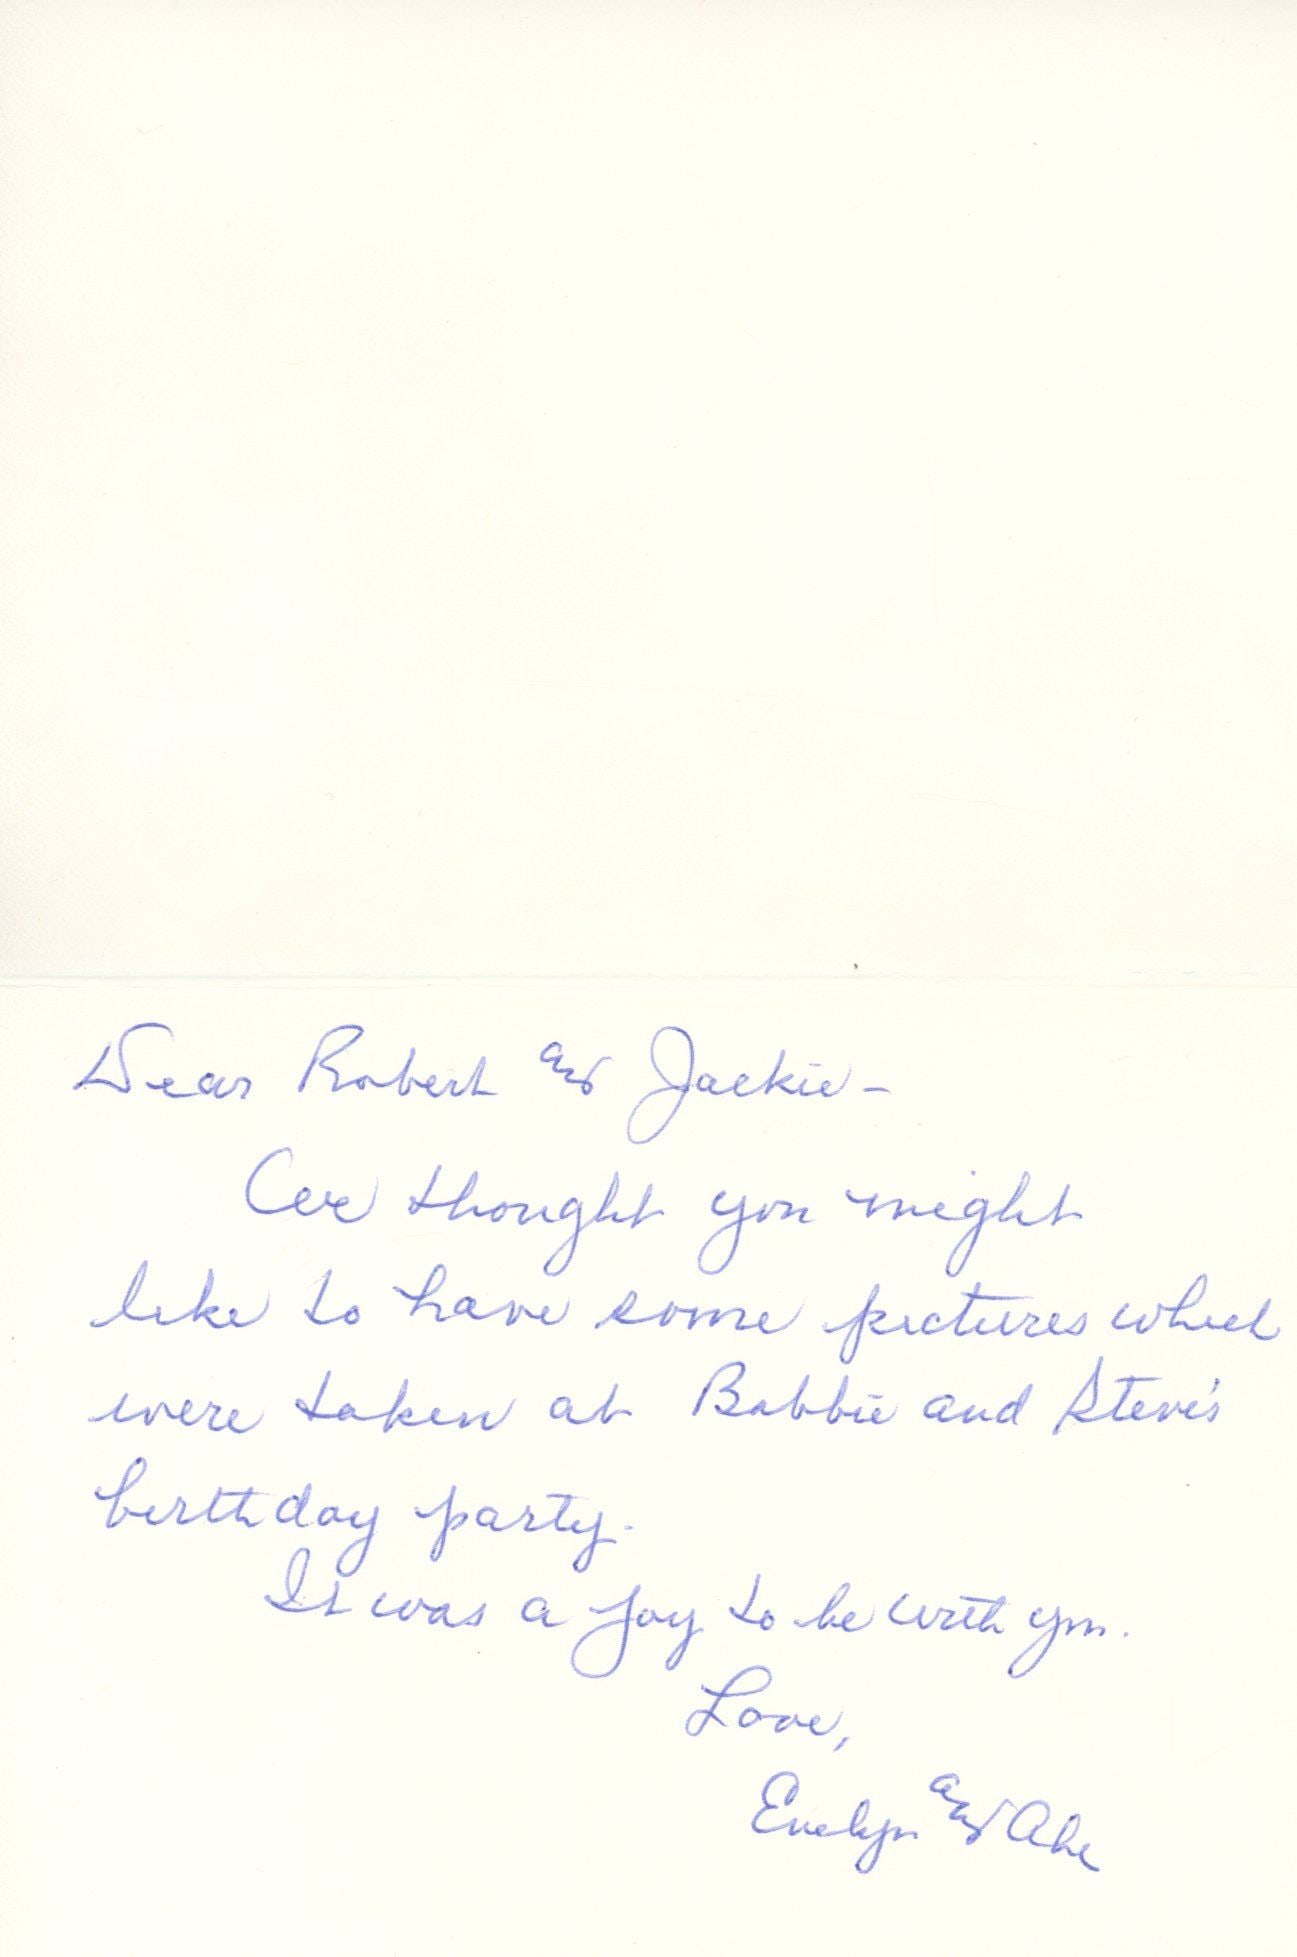 Dear Robert and Jackie -
We thought you might
like to have some pictures which
were taken at Bobbie and Steve's
birthday party.
It was a joy to be with you.
Love,
Evelyn and Abe